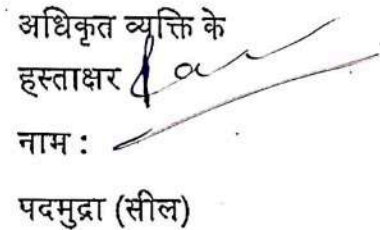 अधिकृत व्यक्ति के
हस्ताक्षर
नाम :
पदमुद्रा (सील)